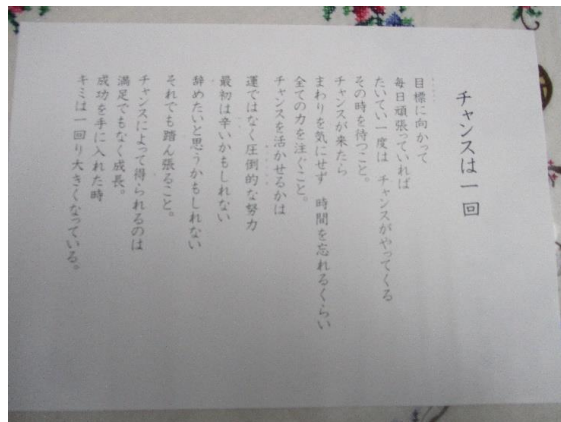 チャンスは一回
目標に向かって
毎日頑張っていれば
たいてい一度は チャンスがやってくる
その時を待つこと。
チャンスが来たら
まわりを気にせず 時間を忘れるくらい
全ての力を注ぐこと。
チャンスを活かせるかは
運ではなく圧倒的な努力
最初は辛いかもしれない
辞めたいと思うかもしれない
それでも踏ん張ること。
チャンスによって得られるのは
満足でもなく成長。
成功を手に入れた時
キミは一回り大きくなっている。